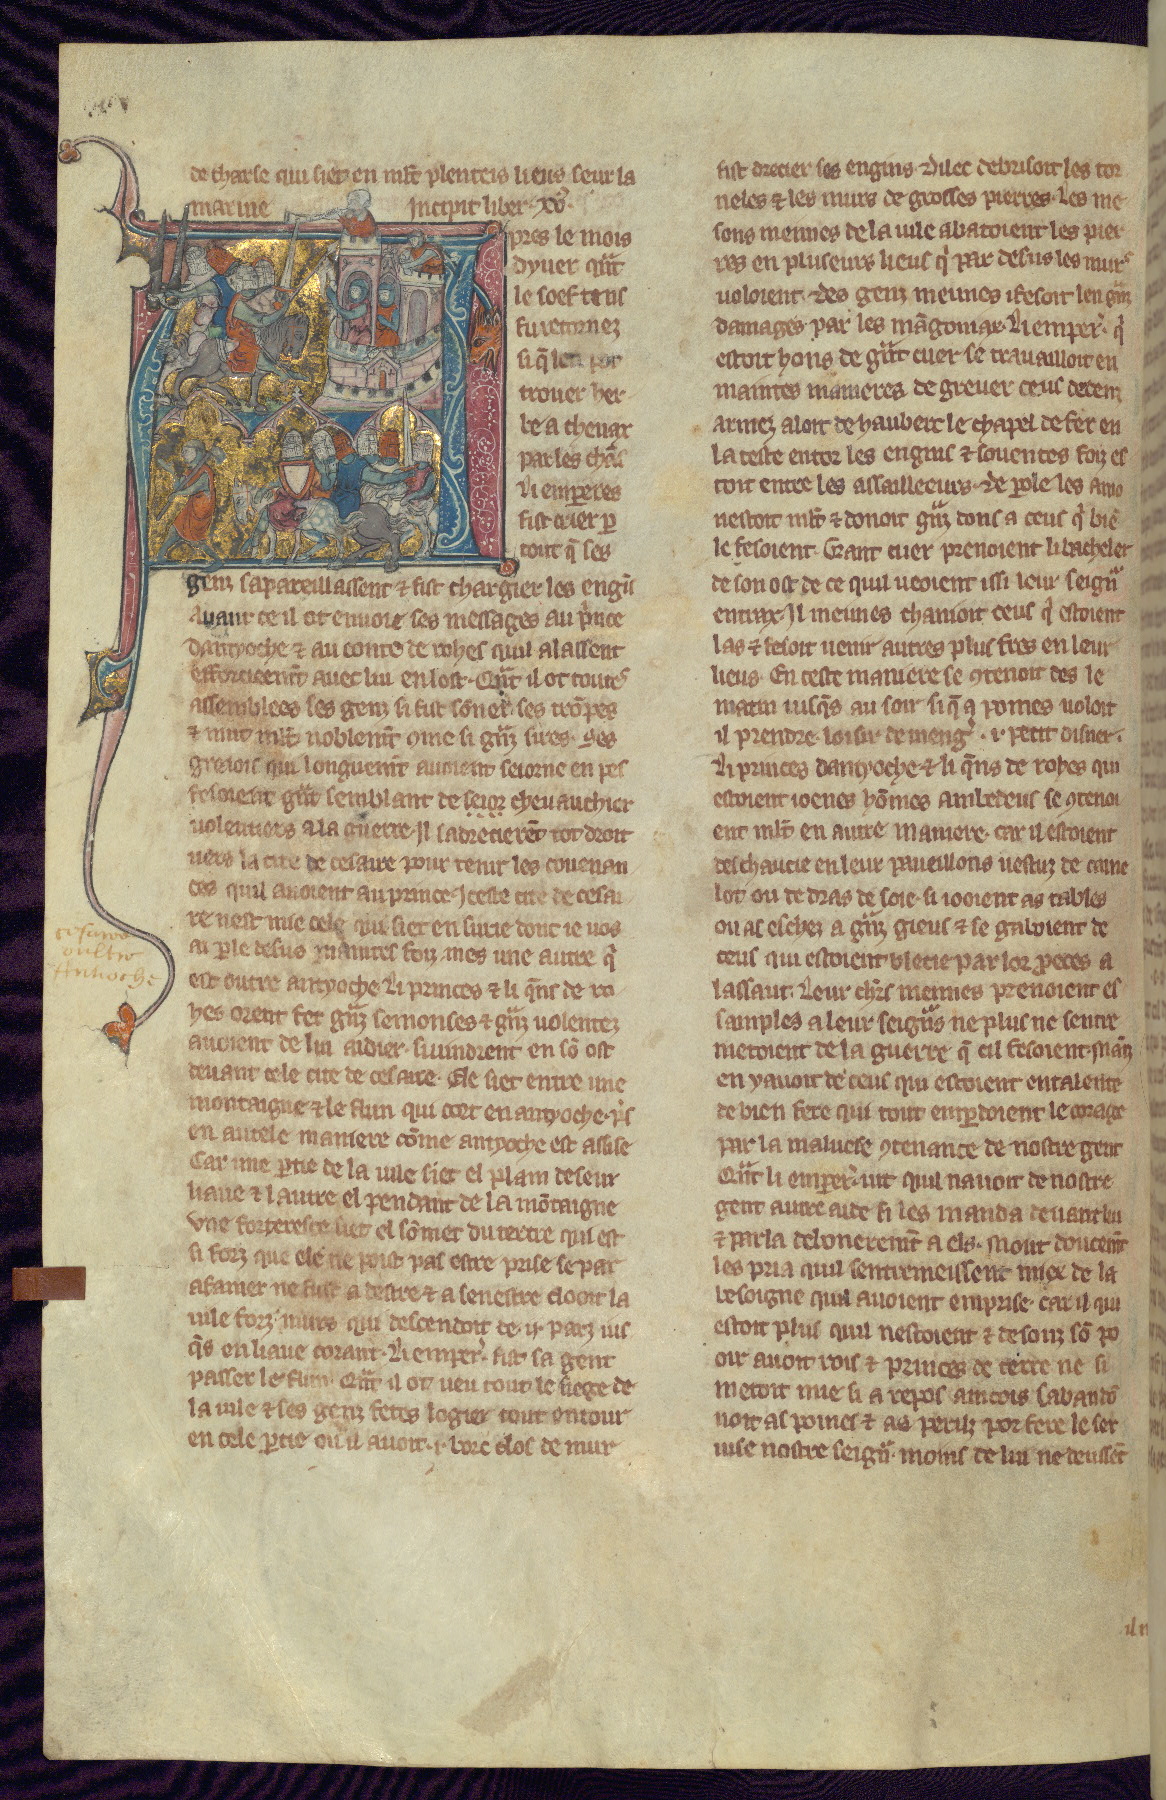 de tharse qui siet en mlt plenteis lieus seur la
marine Incipit liber xv9
pres le mois
dyver qnt
le soef tens
fu retornez
si q̃ len por
trouer her
be a cheuax
par les chãs
Li emperes
fist crier p
tout q̃ ses
genz saparellassent ⁊ fist chargier les engĩs
auant ce il ot enuoie ses messages au prĩce
dantyoche ⁊ au conte de rohes quil alassent
efforcieemt auec lui en lost. Qnt il ot toutes
assemblees ses genz si fist sõner ses trõpes
⁊ mut mlt noblemt 9me si gñz sires. Ses
grejois qui longuemt auoient seiorne en pes
fesoient gnt semblant de seior cheuauchier
uolentiers a la guerre. Il sadrecierẽt tot droit
uers la cite de cesaire pour tenir les couenan
ces quil auoient au prince. Iceste cite de cesai
re nest mie cele qui siet en surie dont ie uos
ai ple desus maintes foiz mes une autre q̃
est outre antyoche. Li princes ⁊ li q̃ns de ro
hes orent fet gñz semonses ⁊ gñz uolentez
auoient de lui aidier. si uindrent en sõ ost
deuant cele cite de cesaire. Ele siet entre une
montaigne ⁊ le flun qui cort en antyoche. p̃s
en autele maniere cõme antyoche est assise
Car une ptie de la uile siet el plain deseur
liaue ⁊ lautre el pendant de la mõtaigne
Vne forterescce siet el sõmet du tertre qui est
si forz que ele ne puist pas estre prise se par
afamer ne fust a destre ⁊ a senestre clooit la
uile forz murs qui descendoit de .ij. parz ius
q̃s en liaue corant. Li emper. fist sa gent
passer le flun. Qnt il ot ueu tout le siege de
la uile ⁊ ses genz fetes logier tout entour
en cele ptie ou il auoit .i. borc clos de mur
fist drecier ses engins. Dilec debrisoit les tor
neles ⁊ les murs de grosses pierres. Les me
sons meimes de la uile abatoient les pier
res en pluseurs lieus q̃ par desus les murs
uoloient. Des genz meimes i fesoit len gñz
damages par les mãgoniax. Li emper. q̃
estoit hons de gñt cuer se trauailloit en
maintes manieres de greuer ceus dedenz
armez aloit de hauberc le chapel de fer en
la teste entor les engins ⁊ souentes foiz es
toit entre les assailleeurs. De pole les amo
nestoit mlt ⁊ donoit gñz dons a ceus q̃ biẽ
le fesoient. Grant cuer prenoient li bacheler
de son ost de ce quil ueoient issi leur seign̄
entrax. Il meimes chanioit ceus q̃ estoient
las ⁊ fesoit uenir autres plus fres en leur
lieus. En ceste maniere se 9tenoit des le
matin iusq̃s au soir si q̃ a poines uoloit
il prendre loisir de meng̃ .i. petit disner.
Li princes dantyoche ⁊ li q̃ns de rohes qui
estoient ioenes hõmes ambedeus se 9tenoi
ent mlt en autre maniere. car il estoient
deschaucie en leur paueillons uestuz de caine
lot ou de dras de soie. si iooient as tables
ou as eschez a gñz gieus ⁊ se gaboient de
ceus qui estoient blecie par lor poeces a
lassaut. Leur ch̃rs meimes prenoient es
samples a leur seign̄s ne plus ne sentre
metoient de la guerre q̃ cil fesoient. Mãz
en y auoit de ceus qui estoient entalente
de bien fere qui tout en pdoient le corage
par la maluese 9tenance de nostre gent
Qnt li emper. uit quil nauoit de nostre
gent autre aide si les manda deuant lui
⁊ parla debonerement a els. Mout doucemt
les pria quil sentremeissent miex de la
besoigne quil auoient emprise. car il qui
estoit plus quil nestoient ⁊ desouz sõ po
oir auoit rois ⁊ princes de terre ne si
metoit mie si a repos aincois sabandõ
noit as poines ⁊ as periz por fere le ser
uise nostre seign̄. moins de lui ne deussẽt
cesaree
oultre
Antioche